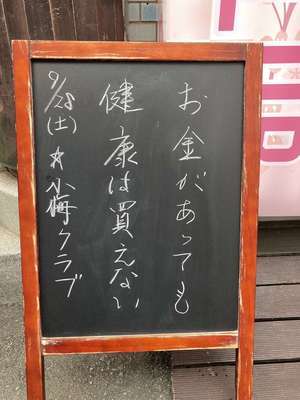 お金があっても
健康は買えない
9/28(土) 小梅クラブ